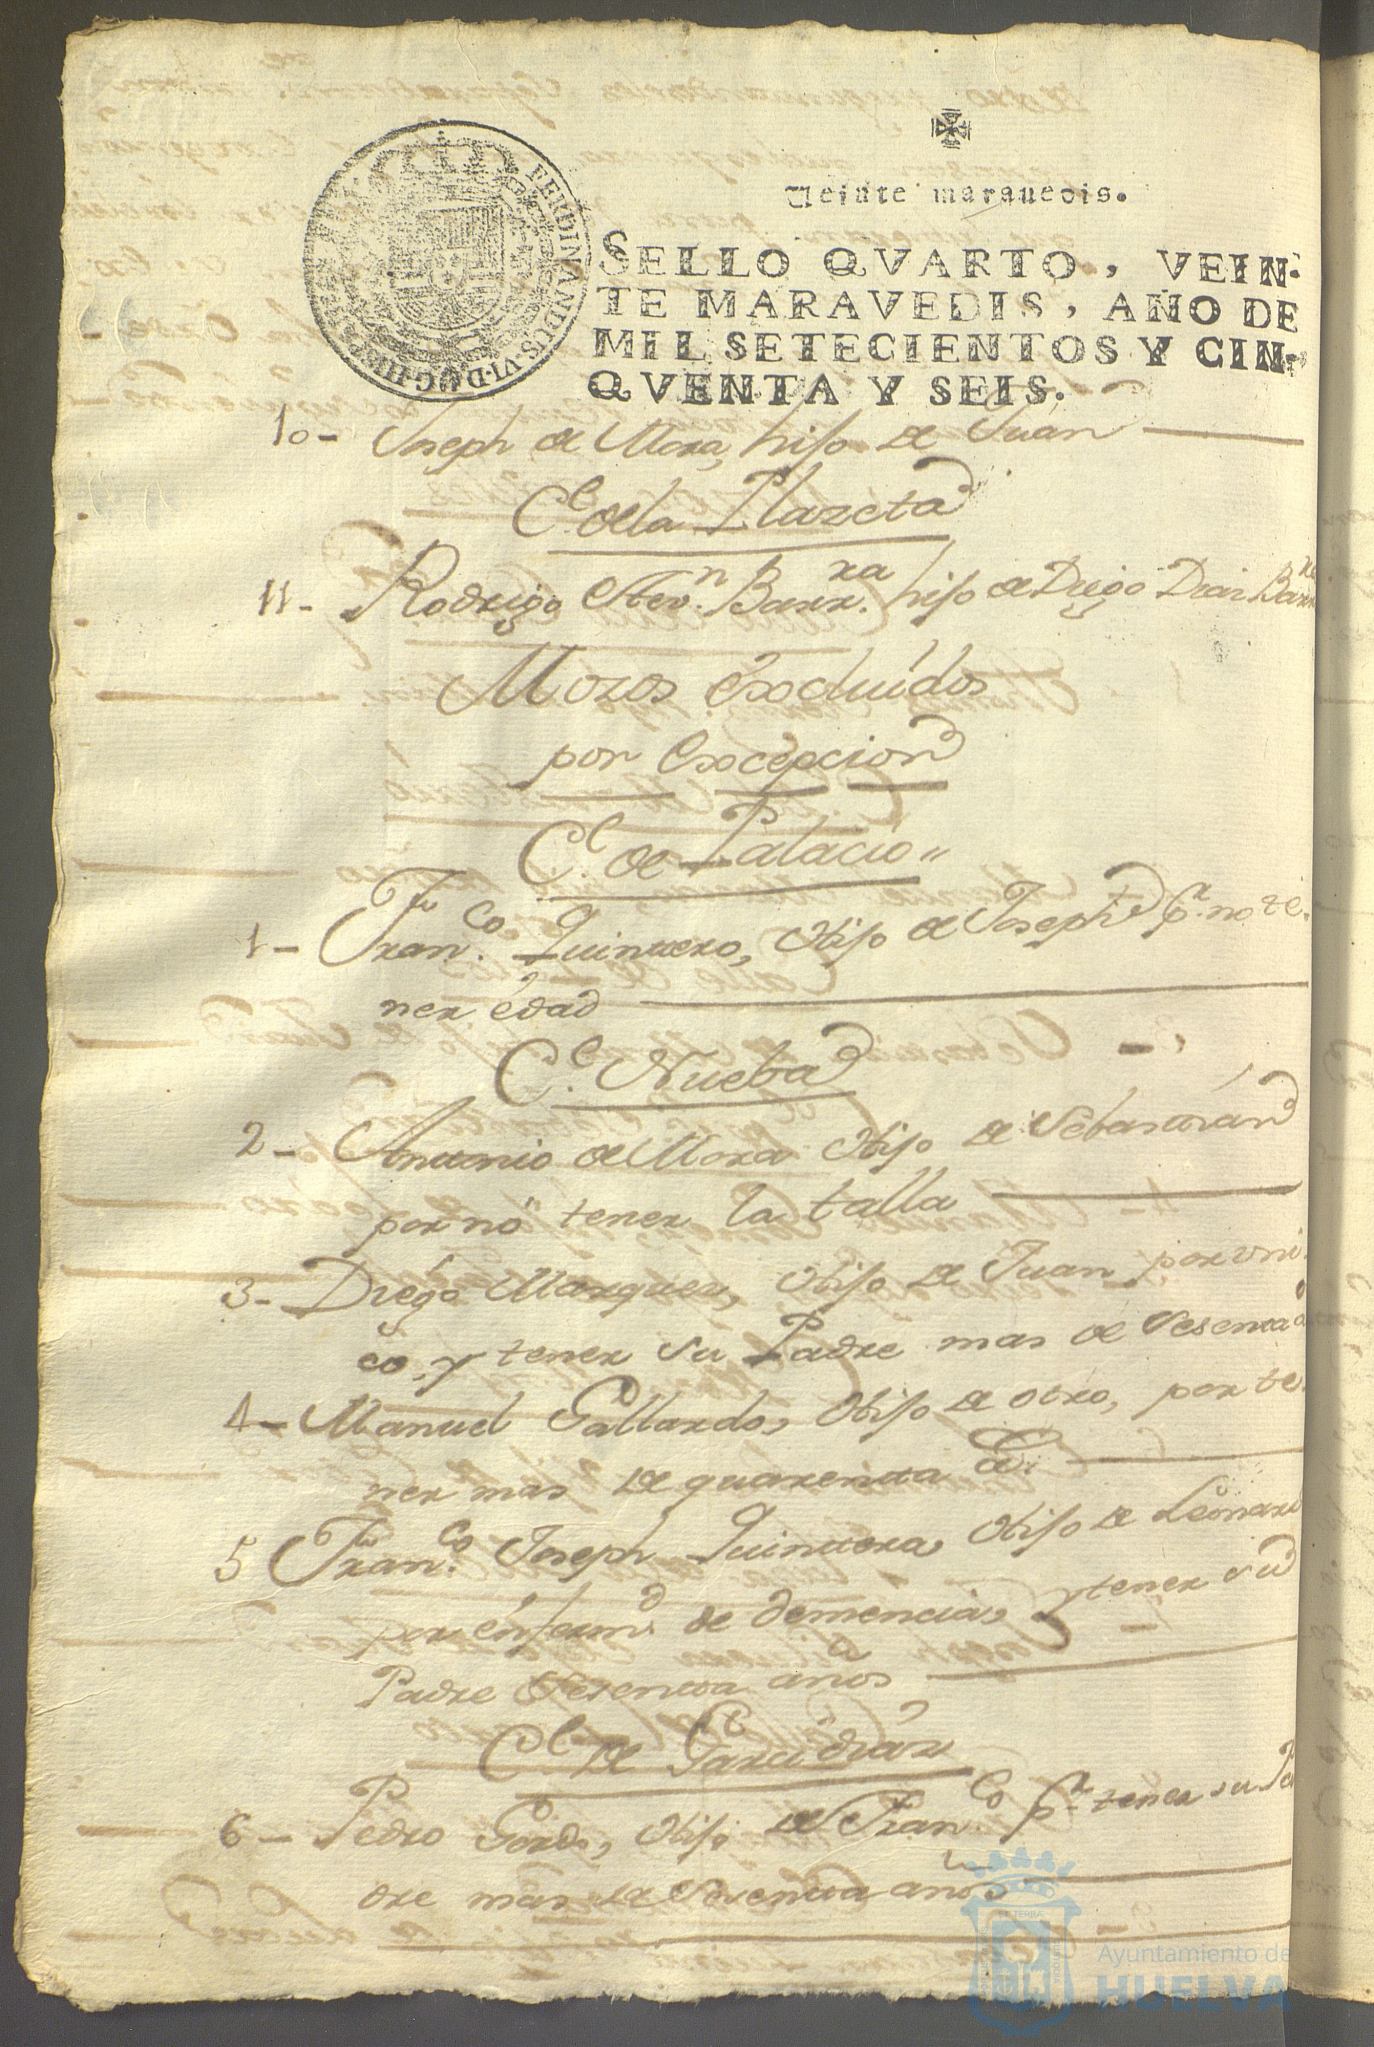 Veinte maravedis.
FERDINANDUS·VI·D·G·
SELLO QVARTO, VEIN-
TE MARAVEDIS, AÑO DE
MIL SETECIENTOS Y CIN-
QVENTA Y SEIS.
10- Joseph de Mora, hijo de Juan
C.e de la Plazeta
11- Rodrigo Barr.ra hijo de Diego Diaz
Mozos Excluidos
por Excepcion
C.e de Palacio
1- Fran.co Quintero, Hijo de Joseph p.r no te-
ner edad
C.e Nueba
2- Antonio de Mora Hijo de Sebastian
por no tener la talla
3- Diego Marquez, Hijo de Juan por uni-
co, y tener su Padre mas de Sesenta a
4- Manuel Gallardo, Hijo de otro, por te-
ner mas de quarenta a.
5 Fran.co Joseph Quintero, Hijo de Leonard
por enferm.d de demencia, y tener su
Padre Sesenta años
C.e de Garcidiaz
6- Pedro Gordo, Hijo de Fran.co p.r tener su Pa
dre mas de Sesenta años
Ayuntamiento de
HUELVA